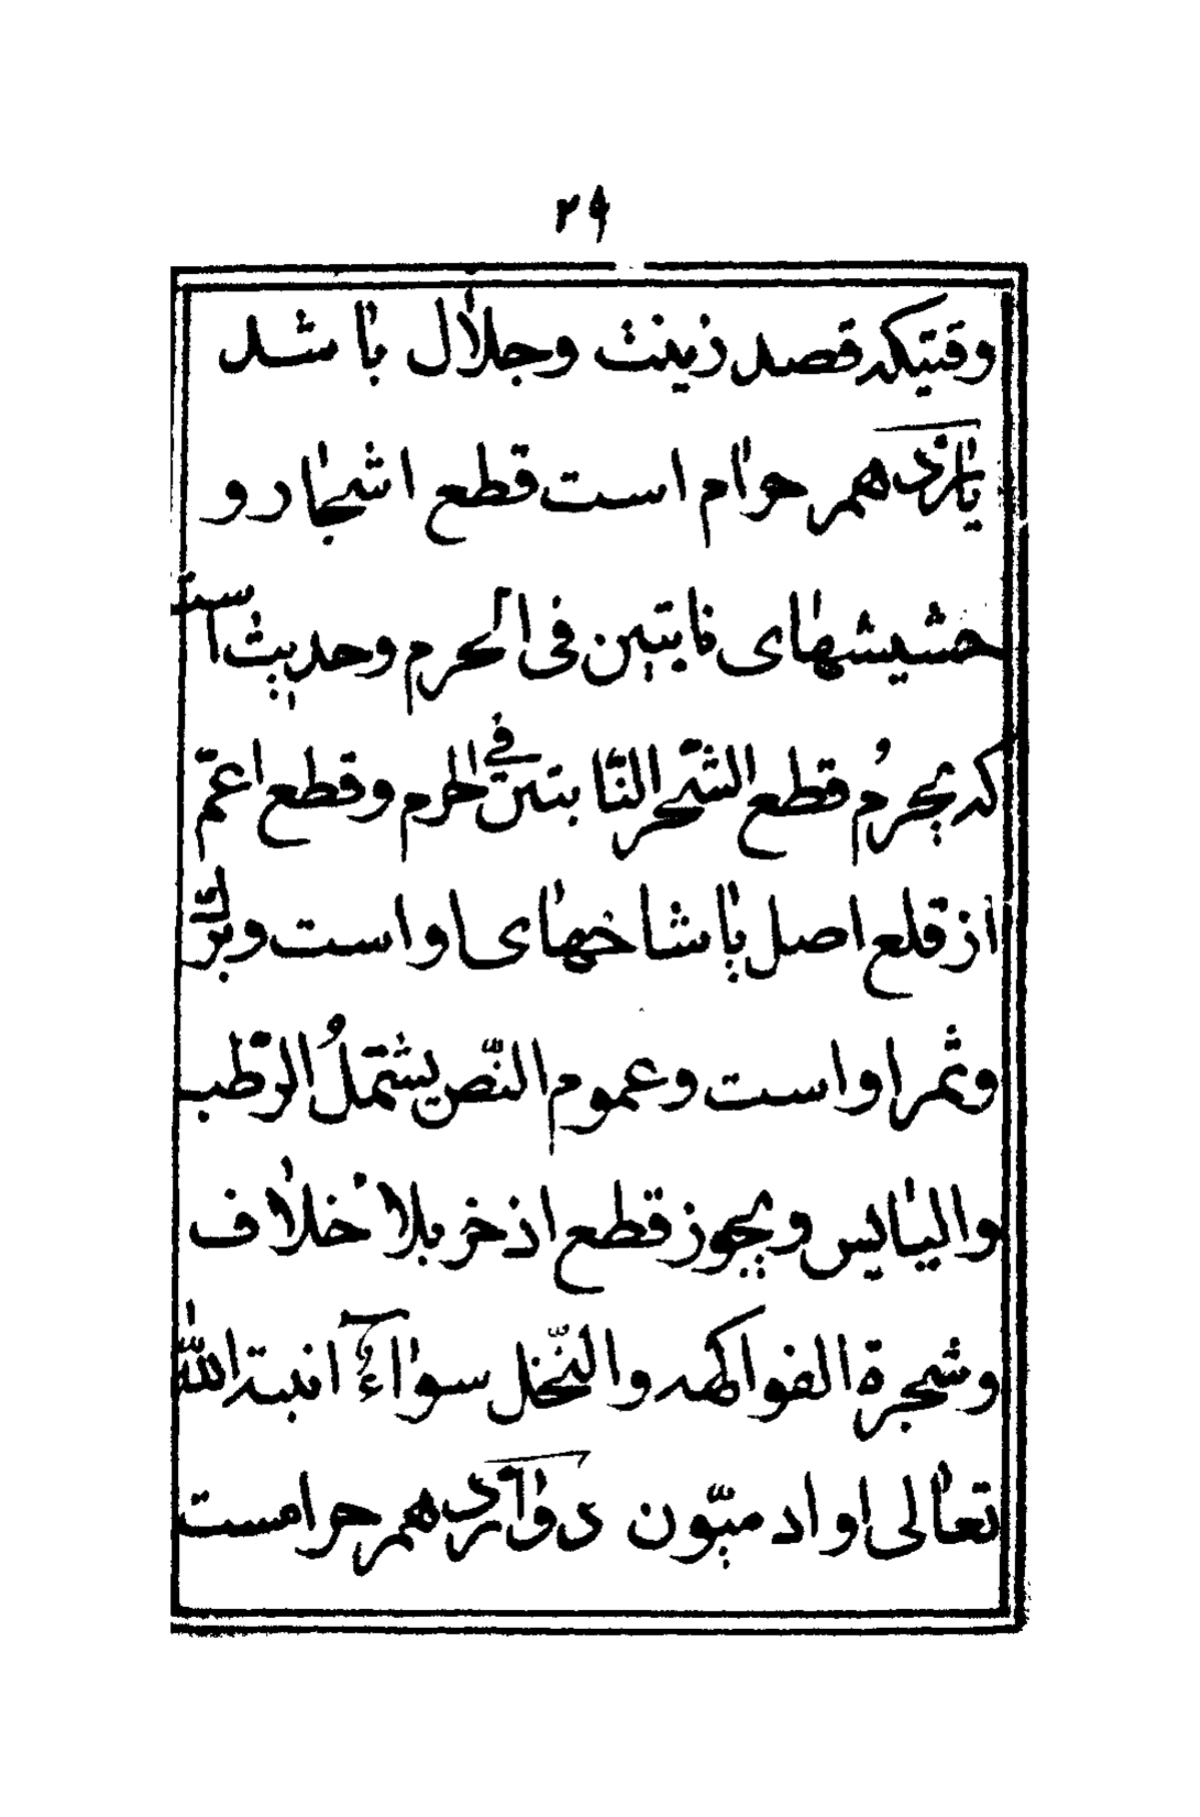 ۲۹
وقتیکه قصد زینت وجلال باشد
یازدهم حرام است قطع اشجار و
حشیشهای نابتین فی الحرم وحدیث است
که یحرمُ قطع الشّجر النّابتین في الحرم وقطع اعمّ
از قلع اصل یا شاخهای او است وبرگ
وثمر او است وعموم النّص یشتملُ الرّطب
والیابس ویجوز قطع اذخر بلا خلاف
وشجرة الفواکهه والنّخل سواءٌ انبته اللّه
تعالی او ادمیّون دوازدهم حرامست